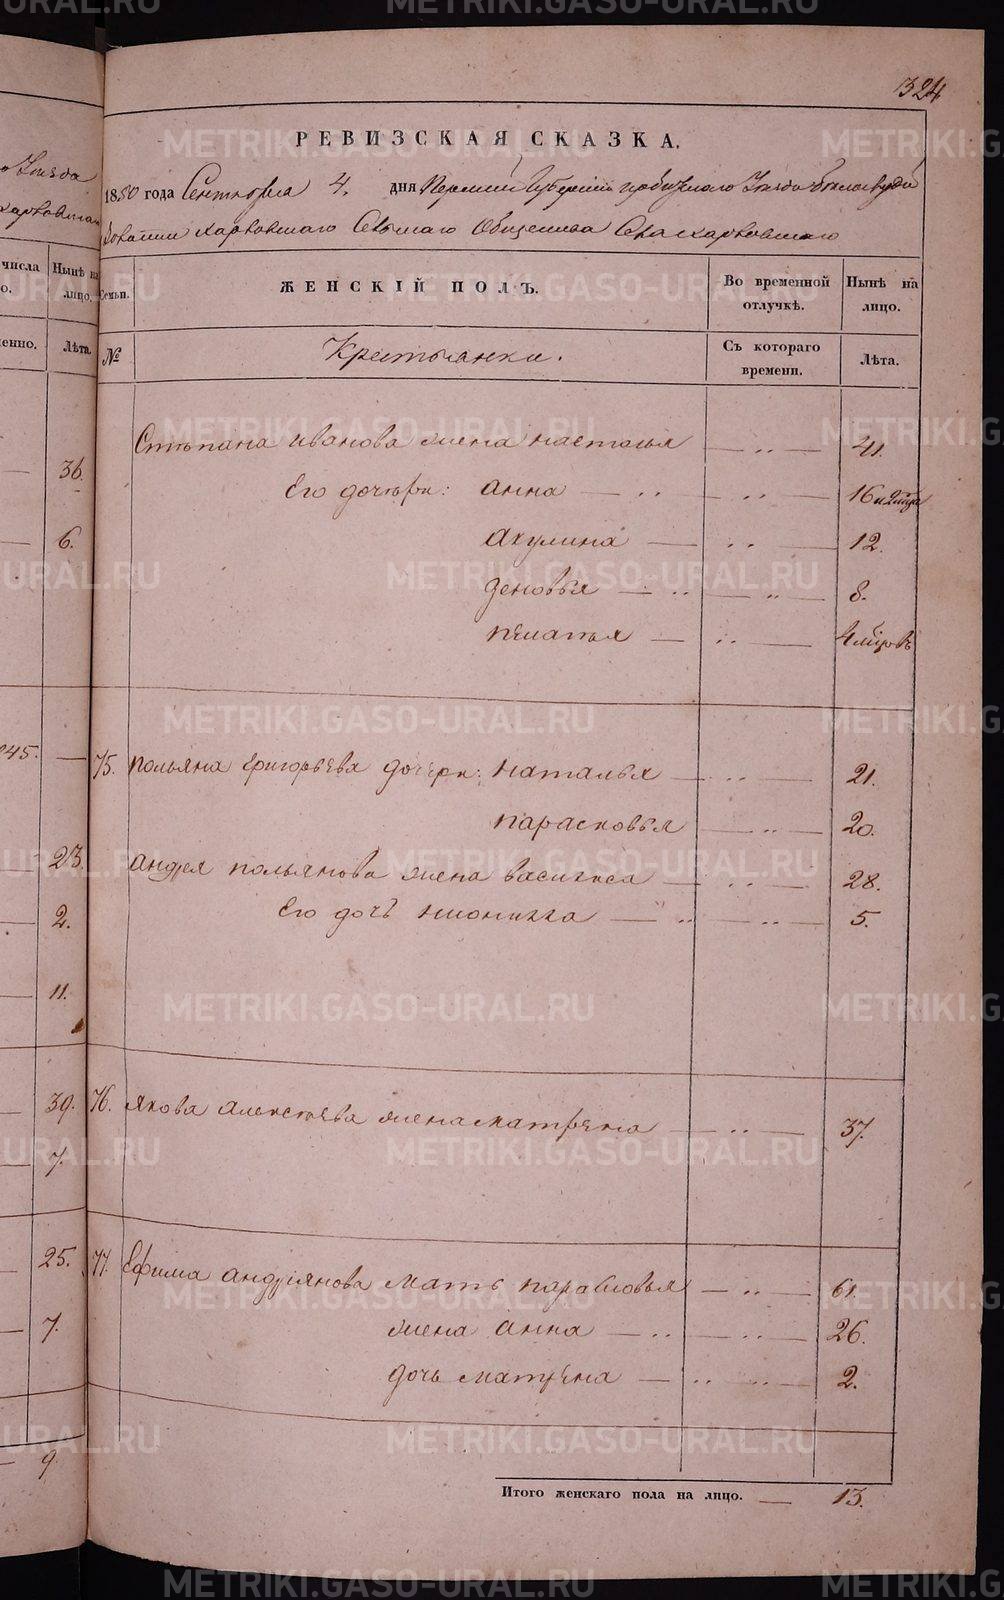 324
РЕВИЗСКАЯ СКАЗКА.
1850 года Сентября 4. дня Пермской Губернии Ирбитскаго Уезда
Харловскаго Сельскаго Общества Села Харловскаго
Семьи. ЖЕНСКІЙ ПОЛЪ. Во временной отлучкѣ. Нынѣ на лицо.
№ Крестьянки. Съ котораго времени. Лѣта.
Степана Иванова жена Настасья — " — 41.
Его дочери: Анна — " — " — 16 и
Акулина — " — 12.
Зеновья — " — " — 8.
Пелагья — " — 4
75. Польяна Григорьева дочери: Наталья — " — 21.
Парасковья — " — 20.
Андрея Польянова жена Василиса — " — 28.
Его дочь — " — " — 5.
76. Якова Алексѣева жена Матрена — " — 37.
77. Ефима Андреянова мать Парасковья — " — 61.
жена Анна — " — " — 26.
дочь Матрена — " — " — 2.
Итого женскаго пола на лицо. — 13.
Уезда
числа
Нынѣ на лицо.
Лѣта.
36.
6.
845. —
23.
2.
11.
39.
7.
25.
7.
9
METRIKI.GASO-URAL.RU